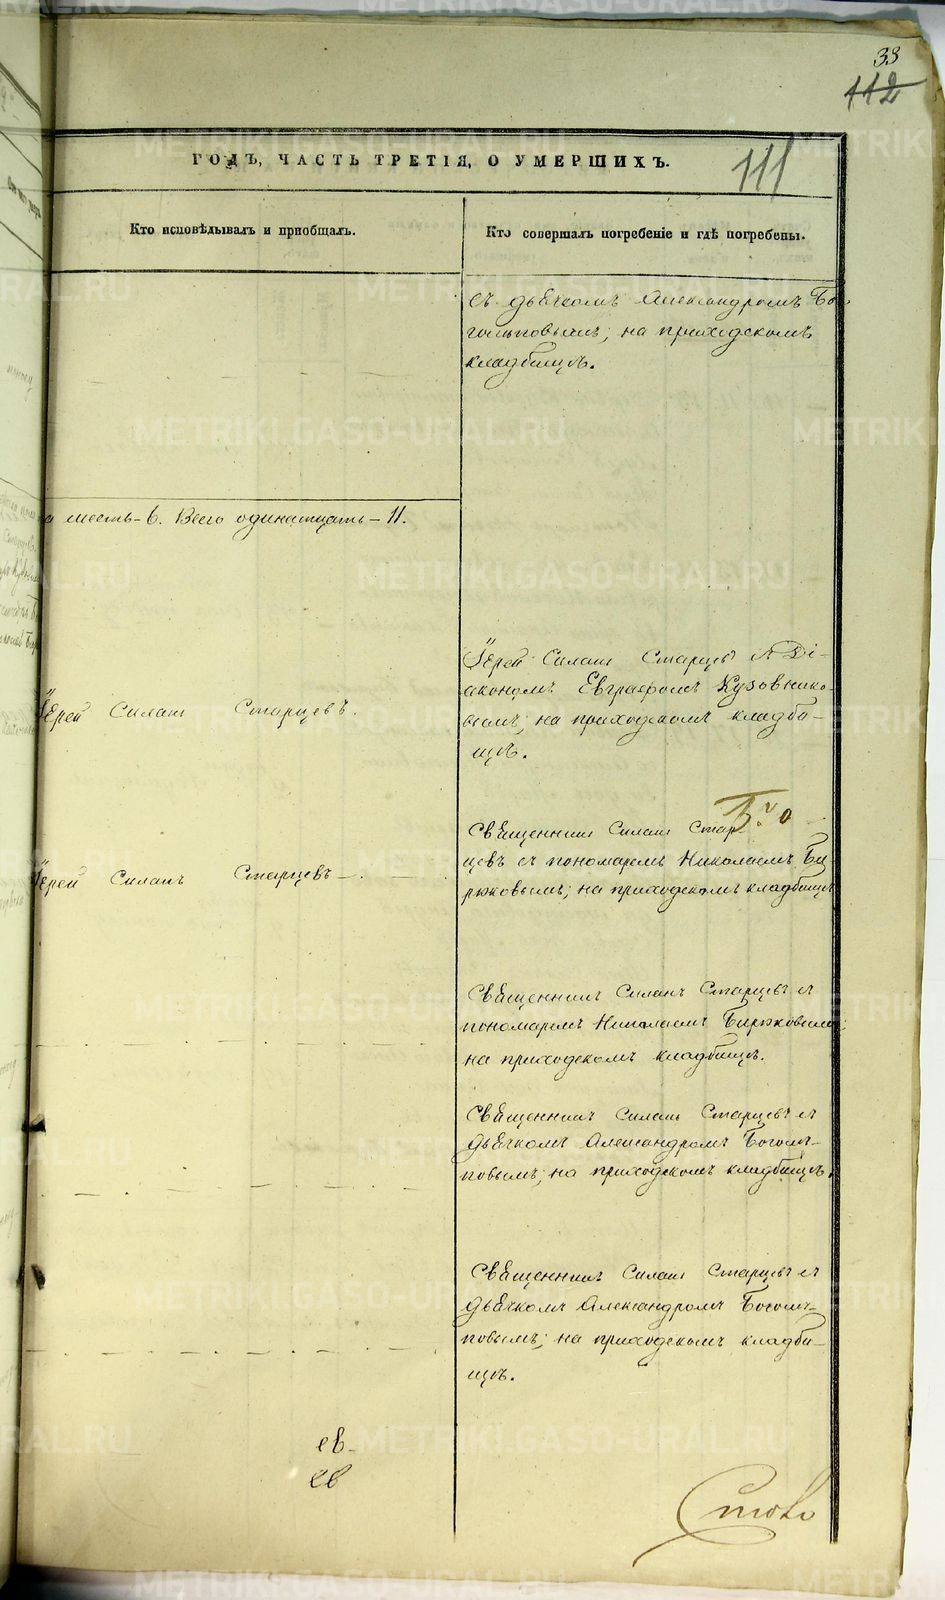 33
112
111
ГОДЪ, ЧАСТЬ ТРЕТІЯ, О УМЕРШИХЪ.
Кто исповѣдывалъ и приобщалъ.
Кто совершалъ погребеніе и гдѣ погребены.
съ дьячкомъ Александромъ Бо-
голѣповымъ; на приходскомъ
кладбищѣ.
шесть - 6. Всего одинатцать - 11.
Іерей Силанъ Старцевъ.
Іерей Силанъ Старцевъ Діа-
акономъ Евграфомъ Кузовнико-
вымъ; на приходскомъ кладби-
щѣ.
Іерей Силанъ Старцевъ
Священник Силанъ Стар
цевъ съ пономаремъ Николаемъ Би
рюковымъ; на приходскомъ кладбищѣ
Священникъ Силанъ Старцевъ съ
пономаремъ Николаемъ Бирюковымъ;
на приходскомъ кладбищѣ.
Священникъ Силанъ Старцевъ съ
дьячкомъ Александромъ Боголѣ-
повымъ; на приходскомъ кладбищѣ.
Священникъ Силанъ Старцевъ съ
дьячкомъ Александромъ Боголѣ-
повымъ; на приходскомъ кладби-
щѣ.
ев-
ев
METRIKI.GASO-URAL.RU